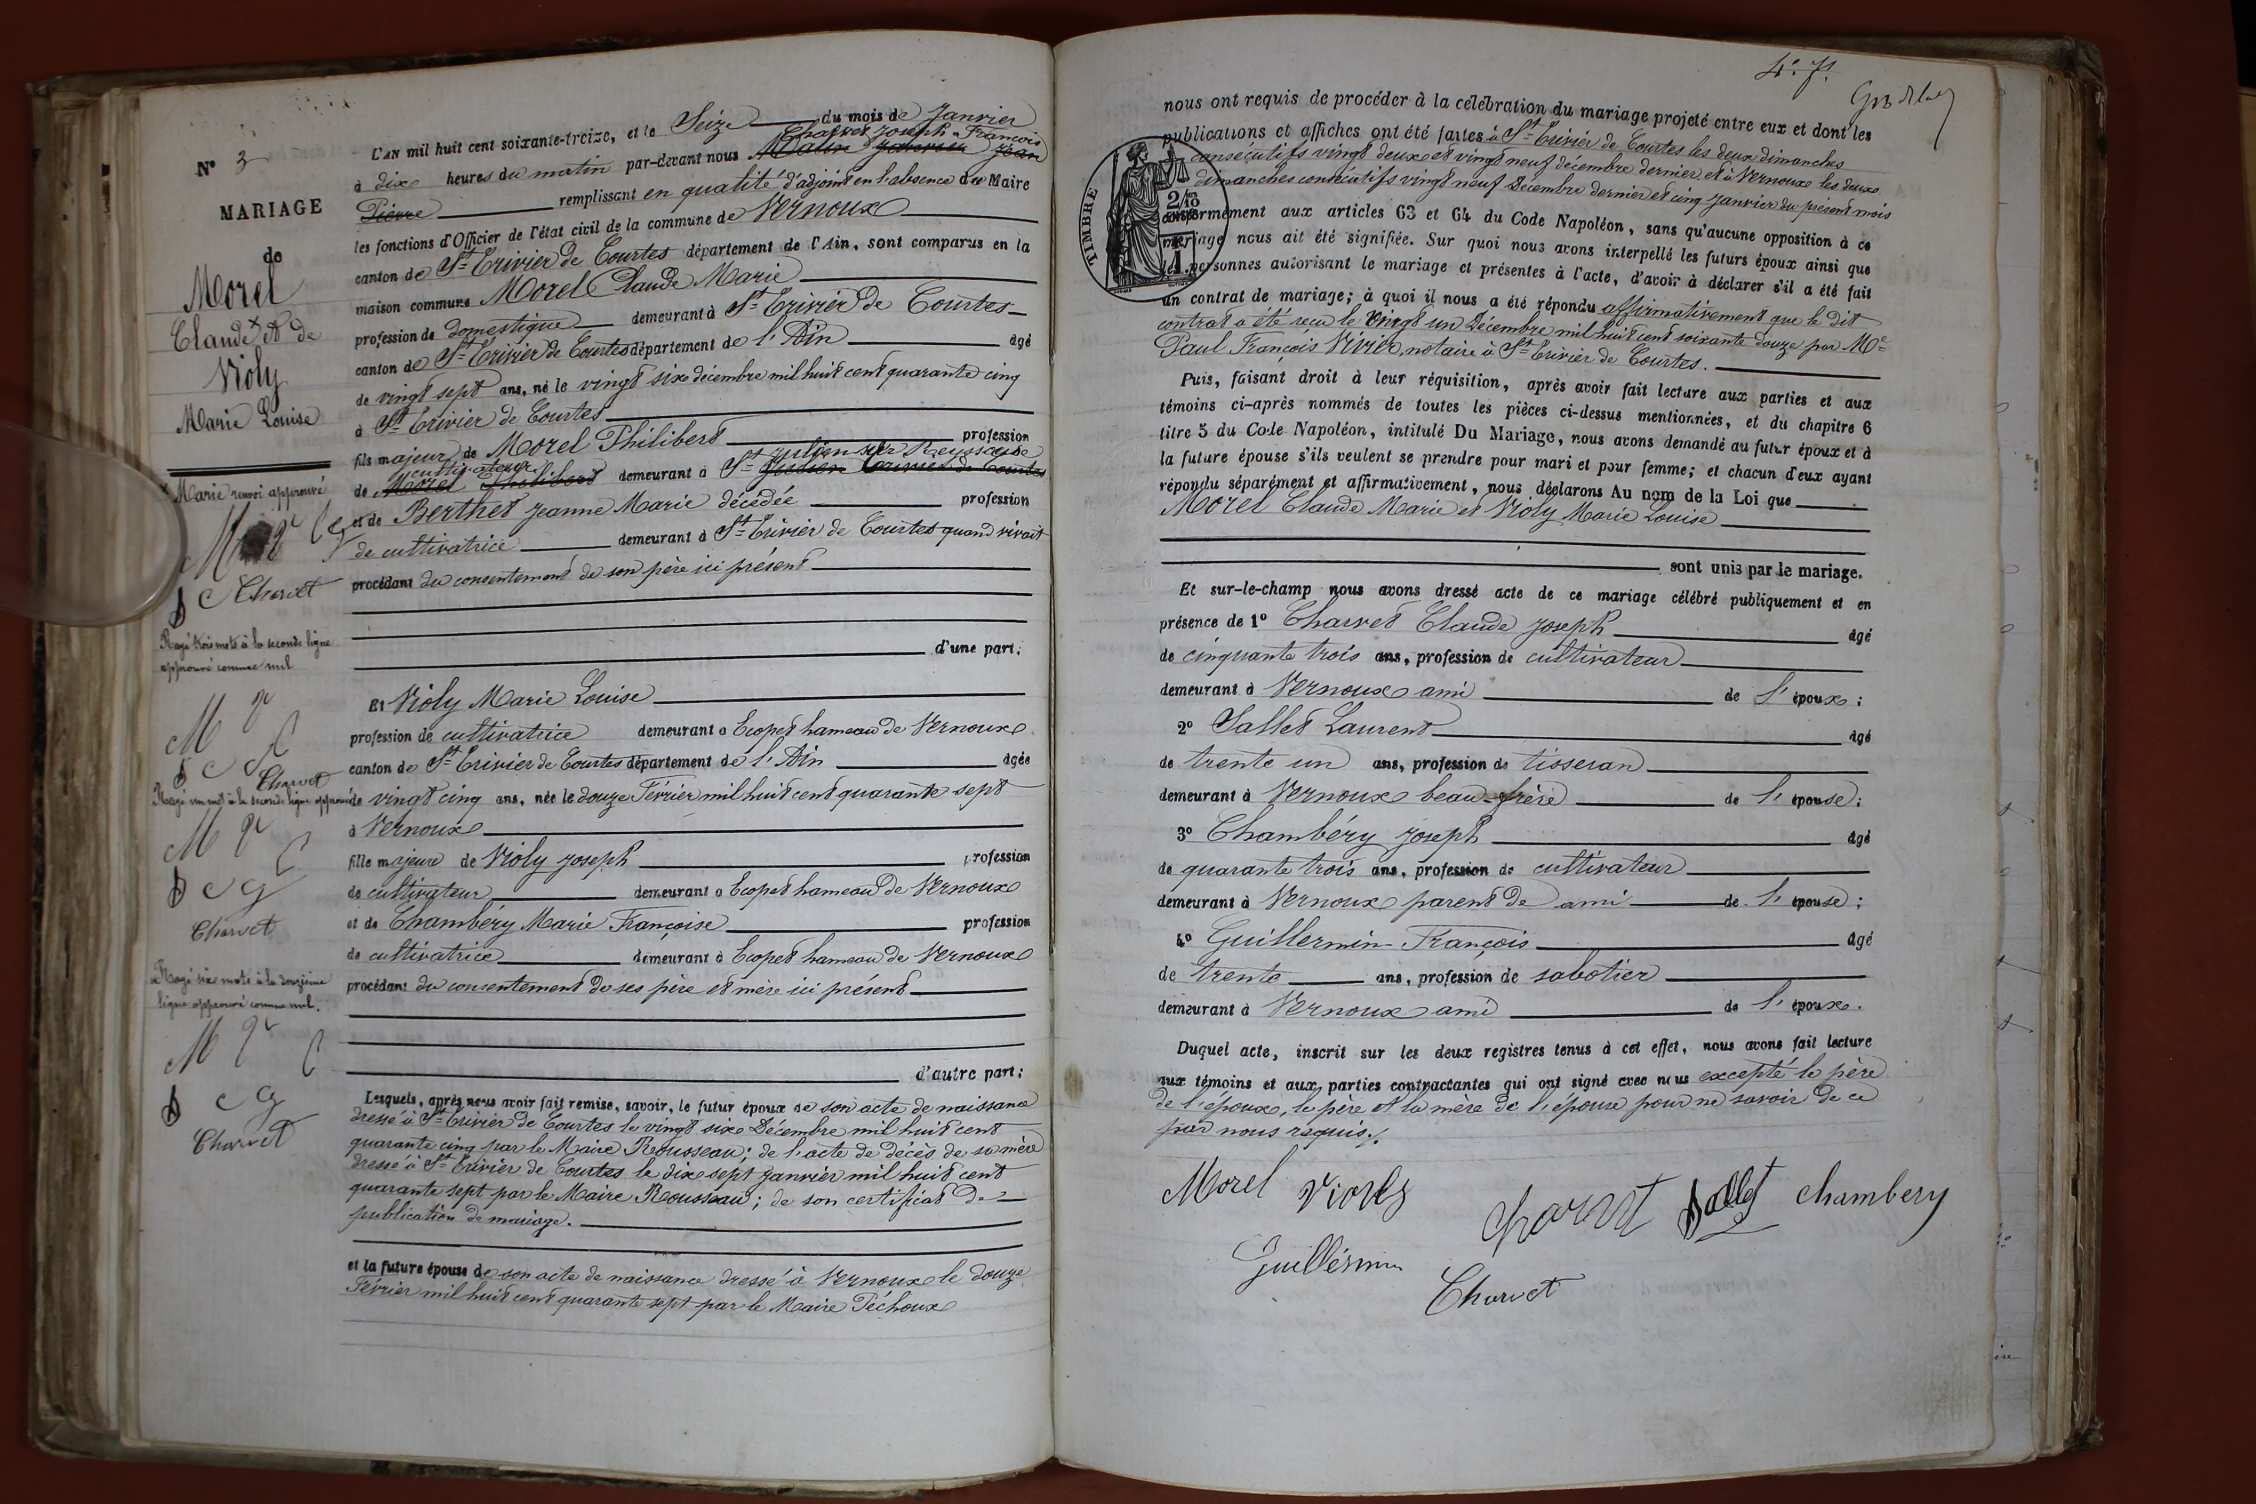 N° 3
MARIAGE
de
Morel
Claude x et de
Violy
Marie Louise
x Marie renvoi approuvé
Charvet
Rayé trois mots à la seconde ligne
approuvé comme nul
Charvet
Rayé un mot à la seconde ligne approuvé
Charvet
Rayé six mots à la douzième
ligne approuvé comme nul.
Charvet
L'AN mil huit cent soixante-treize, et le Seize du mois de Janvier
Charvet Joseph François
à dix heures du matin par-devant nous Jean
Pierre remplissant en qualité d'adjoint en l'absence du Maire
les fonctions d'Officier de l'état civil de la commune de Vernoux
canton de St Trivier de Courtes département de l'Ain, sont comparus en la
maison commune Morel Claude Marie
profession de domestique demeurant à St Trivier de Courtes
canton de St Trivier de Courtes département de l'Ain âgé
de vingt sept ans, né le vingt six décembre mil huit cent quarante cinq
à St Trivier de Courtes
fils majeur de Morel Philibert profession
cultivateur Julien sur Reyssouze
de Morel Philibert demeurant à St Julien Trivier de Courtes
et de Berthet Jeanne Marie décédée profession
de cultivatrice demeurant à St Trivier de Courtes quand vivait
procédant du consentement de son père ici présent
d'une part;
Et Violy Marie Louise
profession de cultivatrice demeurant à Ecopet hameau de Vernoux
canton de St Trivier de Courtes département de l'Ain âgée
de vingt cinq ans, née le douze Février mil huit cent quarante sept
à Vernoux
fille majeure de Violy Joseph profession
de cultivateur demeurant à Ecopet hameau de Vernoux
et de Chambéry Marie Françoise profession
de cultivatrice demeurant à Ecopet hameau de Vernoux
procédant du consentement de ses père et mère ici présent
d'autre part;
Lesquels, après nous avoir fait remise, savoir, le futur époux de son acte de naissance
dressé à St Trivier de Courtes le vingt six Décembre mil huit cent
quarante cinq par le Maire Rousseau; de l'acte de décès de sa mère
dressé à St Trivier de Courtes le dix sept Janvier mil huit cent
quarante sept par le Maire Rousseau; de son certificat de
publication de mariage.
et la future épouse de son acte de naissance dressé à Vernoux le douze
Février mil huit cent quarante sept par le Maire Péchoux
nous ont requis de procéder à la célébration du mariage projeté entre eux et dont les
publications et affiches ont été faites à St Trivier de Courtes les deux dimanches
consécutifs vingt deux et vingt neuf décembre dernier et à Vernoux les deux
dimanches consécutifs vingt neuf Décembre dernier et cinq Janvier du présent mois
conformément aux articles 63 et 64 du Code Napoléon, sans qu'aucune opposition à ce
mariage nous ait été signifiée. Sur quoi nous avons interpellé les futurs époux ainsi que
les personnes autorisant le mariage et présentes à l'acte, d'avoir à déclarer s'il a été fait
un contrat de mariage; à quoi il nous a été répondu affirmativement que le dit
contrat a été reçu le vingt un Décembre mil huit cent soixante douze par Me
Paul François Vivier, notaire à St Trivier de Courtes.
TIMBRE
Puis, faisant droit à leur réquisition, après avoir fait lecture aux parties et aux
témoins ci-après nommés de toutes les pièces ci-dessus mentionnées, et du chapitre 6
titre 5 du Code Napoléon, intitulé Du Mariage, nous avons demandé au futur époux et à
la future épouse s'ils veulent se prendre pour mari et pour femme; et chacun d'eux ayant
répondu séparément et affirmativement, nous déclarons Au nom de la Loi que
Morel Claude Marie et Violy Marie Louise
sont unis par le mariage.
Et sur-le-champ nous avons dressé acte de ce mariage célébré publiquement et en
présence de 1° Charvet Claude Joseph âgé
de cinquante trois ans, profession de cultivateur
demeurant à Vernoux ami de l'époux;
2° Sallet Laurent âgé
de trente un ans, profession de tisseran
demeurant à Vernoux beau-frère de l'épouse;
3° Chambéry Joseph âgé
de quarante trois ans, profession de cultivateur
demeurant à Vernoux parent de ami de l'épouse;
4° Guillermin François âgé
de trente ans, profession de sabotier
demeurant à Vernoux ami de l'époux.
Duquel acte, inscrit sur les deux registres tenus à cet effet, nous avons fait lecture
aux témoins et aux parties contractantes qui ont signé avec nous excepté le père
de l'époux, le père et la mère de l'épouse pour ne savoir de ce
par nous requis./.
Morel Violy Charvet Sallet Chambery
Guillérmin
Charvet